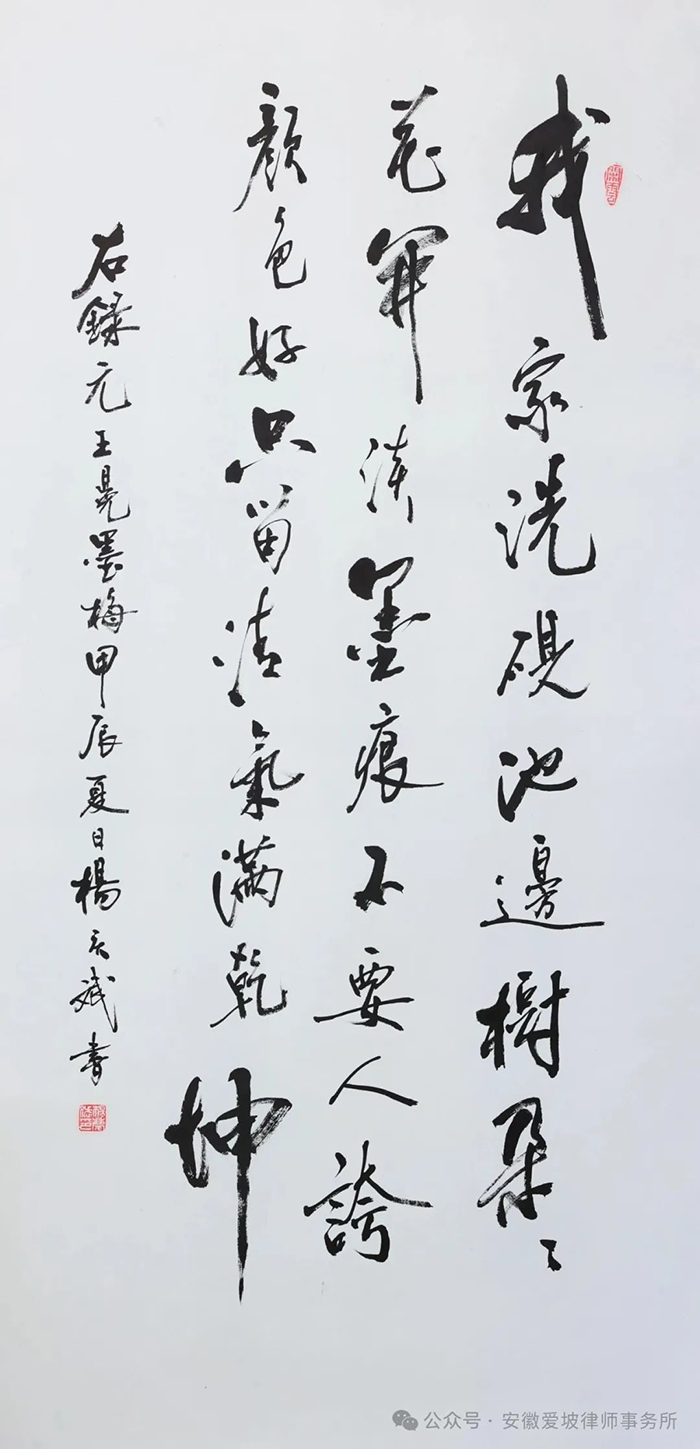 我家洗硯池邊樹朵〻
花開淡墨痕不要人誇
顏色好只留清氣滿乾坤
右錄元王冕墨梅甲辰夏日楊玉斌書
公众号·安徽爱坡律师事务所